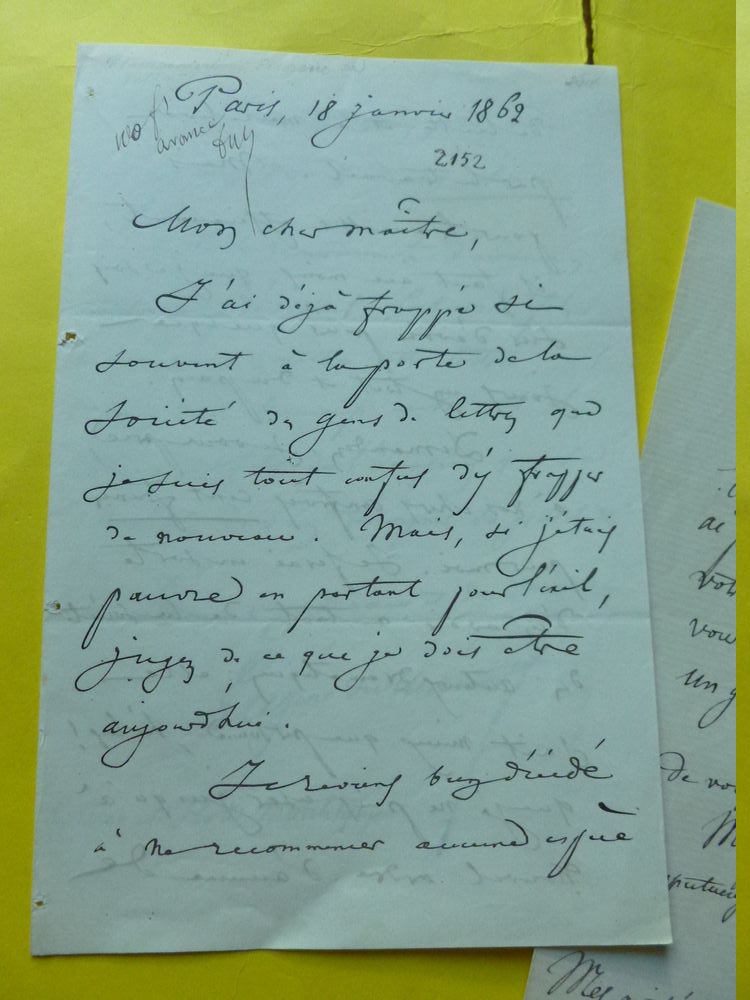 Paris, 18 janvier 1862
100 f
avance
2152
Mon cher maître,
J'ai déjà frappé si
souvent à la porte de la
Société des gens de lettres que
je suis tout confus d'y frapper
de nouveau. Mais, si j'étais
pauvre en partant pour l'exil,
jugez de ce que je dois être
aujourd'hui.
Je reviens bien décidé
à ne recommencer aucune espèce
ai
votr
vou
un g
de vo
M